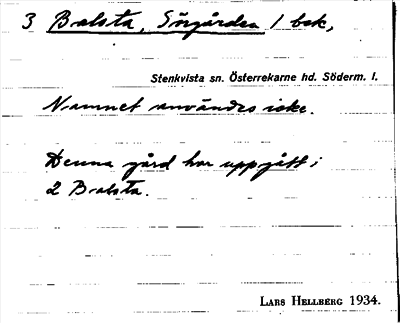 3 Balsta, Sörgården / bek,
Stenkvista sn. Österrekarne hd. Söderm. l.
Namnet användes icke.
Denna gård har uppgått i
2 Balsta.
LARS HELLBERG 1934.